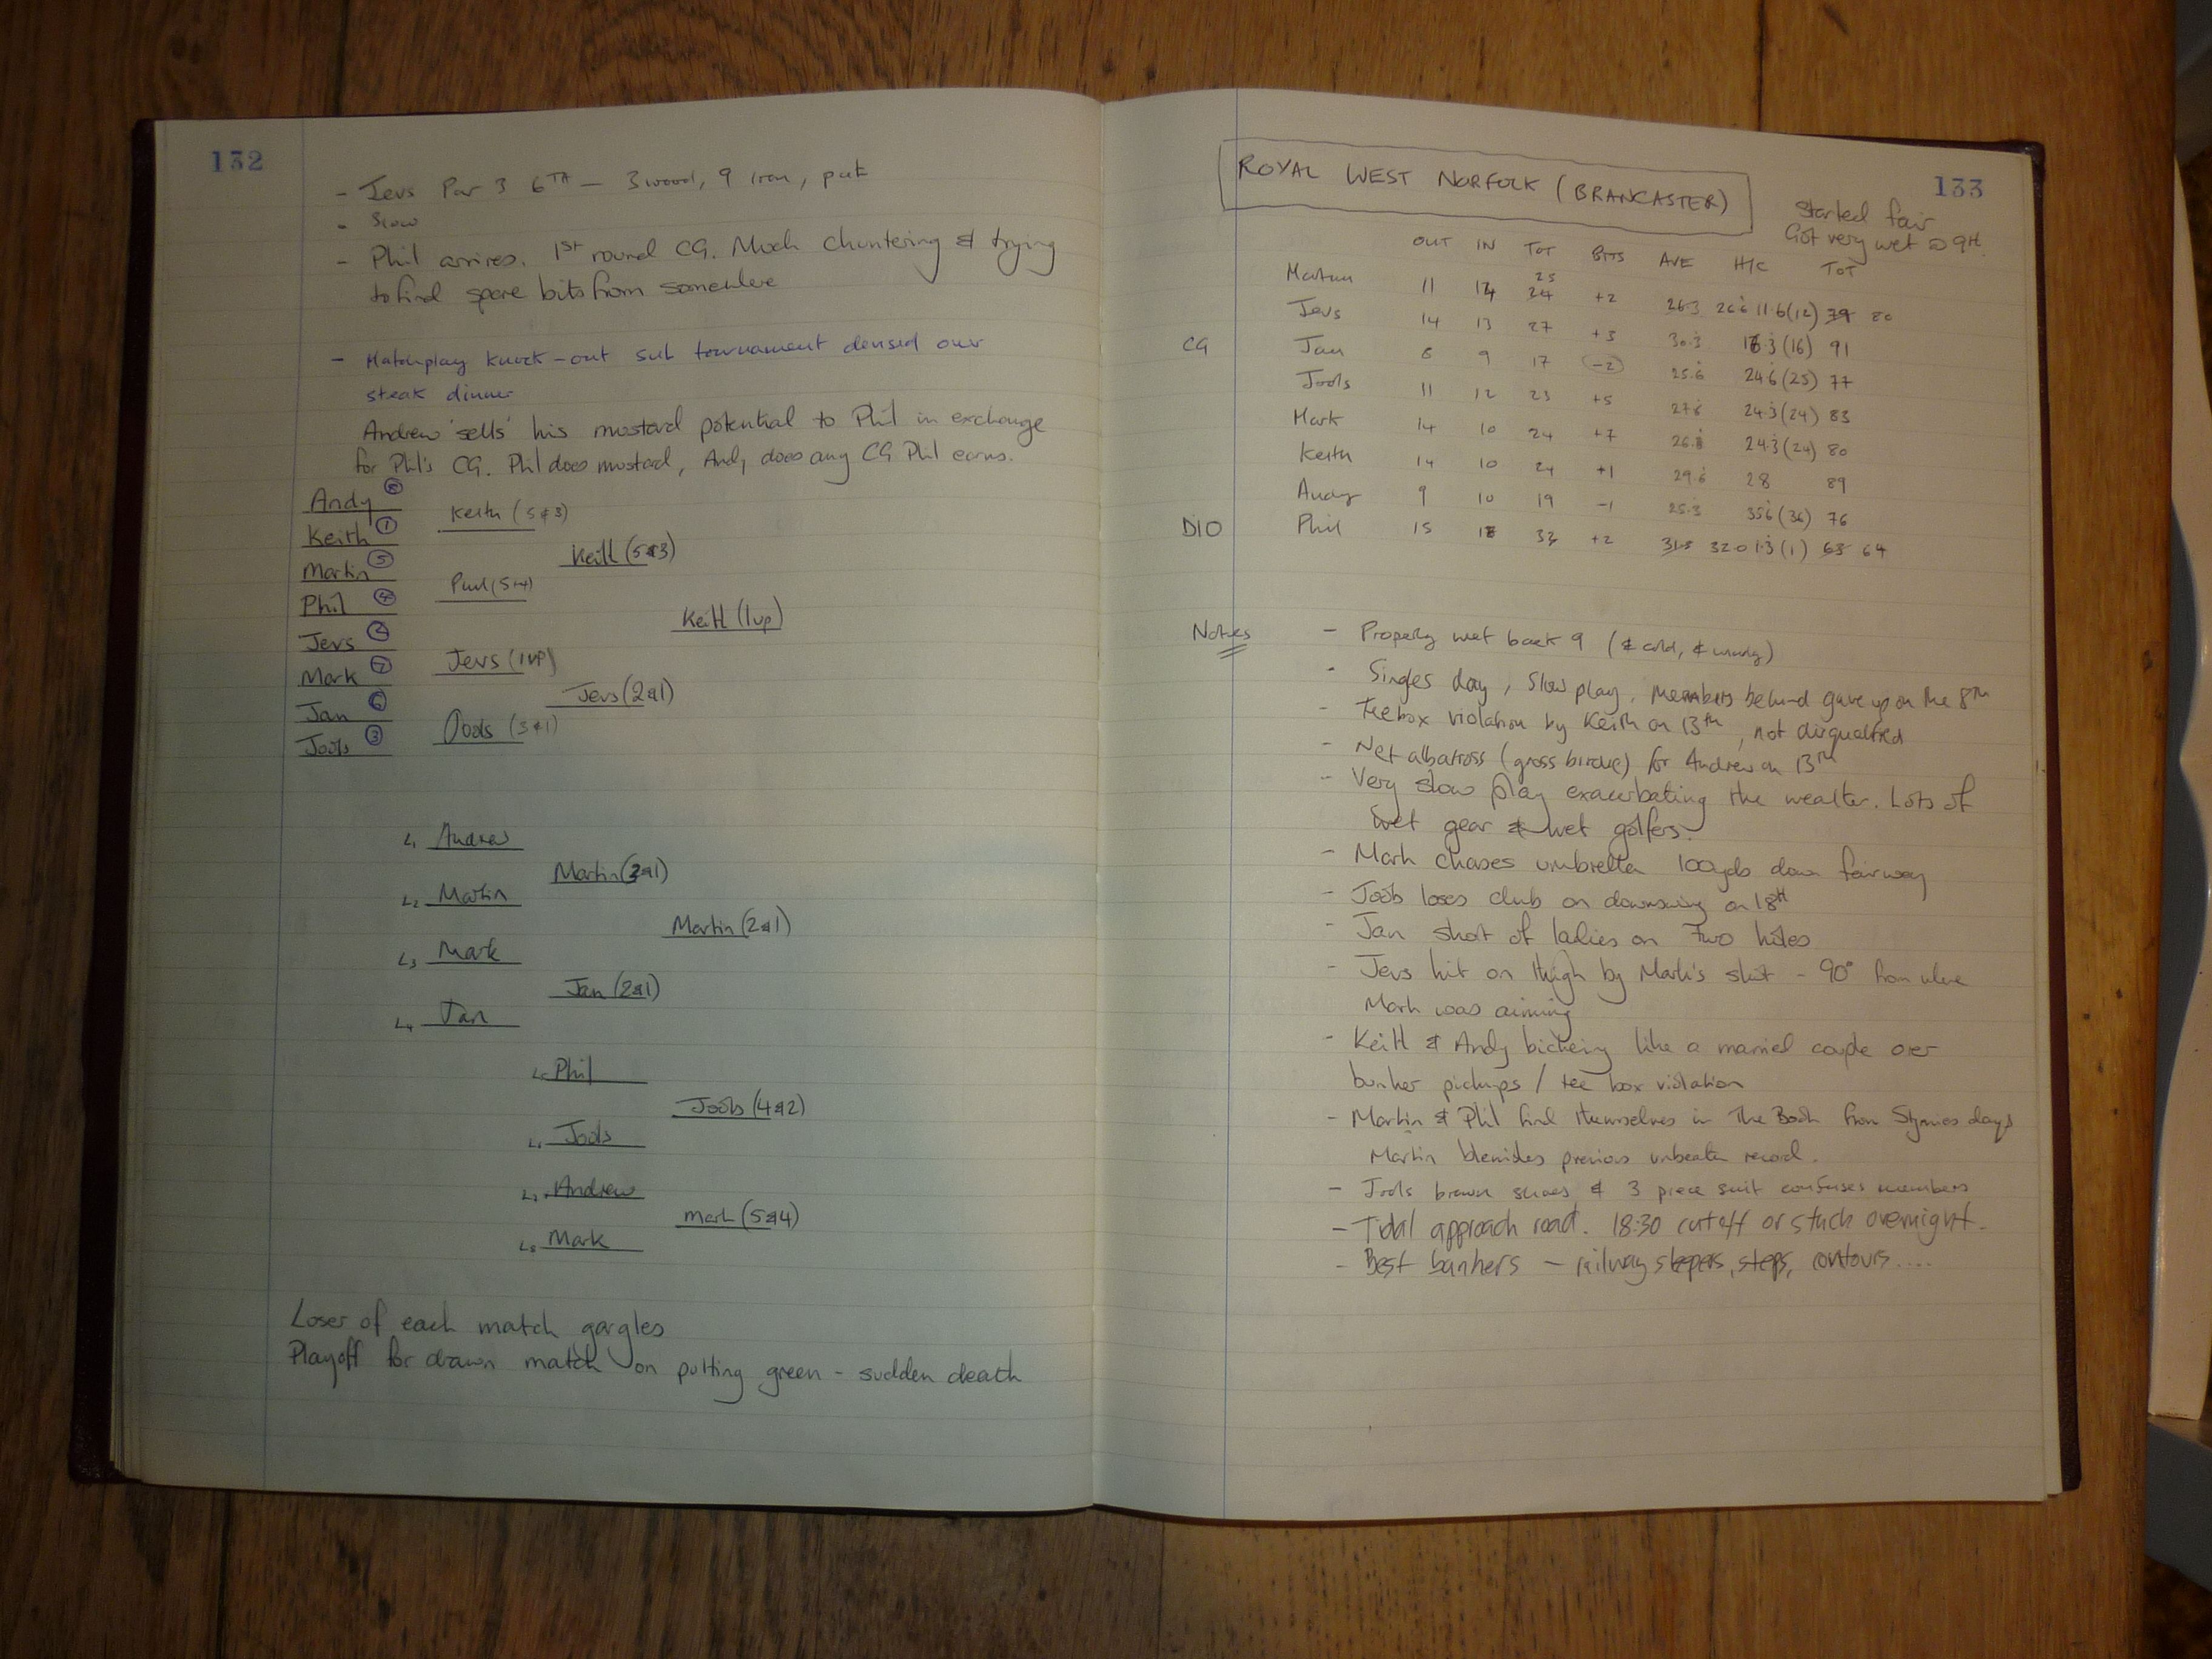 132
- Jevs Par 3 6TH - 3 wood, 9 iron, putt
- Slow
- Phil arrives. 1st round CG. Much chuntering & trying
to find spare bits from somewhere
- Matchplay knock-out sub tournament devised over
steak dinner
Andrew 'sells' his mustard potential to Phil in exchange
for Phil's CG. Phil does mustard, Andy does any CG Phil earns.
Andy 8
Keith (5&3)
Keith 1
Keith (5&3)
Martin 5
Phil (5+4)
Phil 4
Keith (1up)
Jevs 2
Jevs (1up)
Mark 7
Jevs (2&1)
Jan 6
Jools (3&1)
Jools 3
L1 Andrew
Martin (2&1)
L2 Martin
Martin (2&1)
L3 Mark
Jan (2&1)
L4 Jan
Phil
Jools (4&2)
Jools
Andrew
Mark (5&4)
L8 Mark
Loser of each match gargles
Playoff for drawn match on putting green - sudden death
133
ROYAL WEST NORFOLK (BRANCASTER)
Started fair
Got very wet @ 9th.
OUT IN TOT BITS AVE H/C TOT
Martin 11 14 24 25 +2 26.3 26.6 11.6(12) 79 80
Jevs 14 13 27 +3 30.3 16.3 (16) 91
CG Jan 8 9 17 -2 25.6 24.6 (25) 77
Jools 11 12 23 +5 27.6 24.3 (24) 83
Mark 14 10 24 +7 26.6 24.3 (24) 80
Keith 14 10 24 +1 29.6 28 89
Andy 9 10 19 -1 25.3 35.6 (36) 76
D10 Phil 15 18 33 +2 31.5 32.0 1.3 (1) 63 64
Notes
- Properly wet back 9 (& cold, & windy)
- Singles day, slow play. Members behind gave up on the 8th
- Tee box violation by Keith on 13th, not disqualified
- Net albatross (gross birdie) for Andrew on 13th
- Very slow play exacerbating the weather. Lots of
wet gear & wet golfers.
- Mark chases umbrella 100yds down fairway
- Jools loses club on downswing on 18th
- Jan short of ladies on two holes
- Jevs hit on thigh by Mark's shot - 90° from where
Mark was aiming
- Keith & Andy bickering like a married couple over
bunker pickups / tee box violation
- Martin & Phil find themselves in The Book from Stymies days
Martin blemishes previous unbeaten record.
- Jools brown shoes & 3 piece suit confuses members
- Tidal approach road. 18:30 cutoff or stuck overnight.
- Best bunkers - railway sleepers, steps, contours....